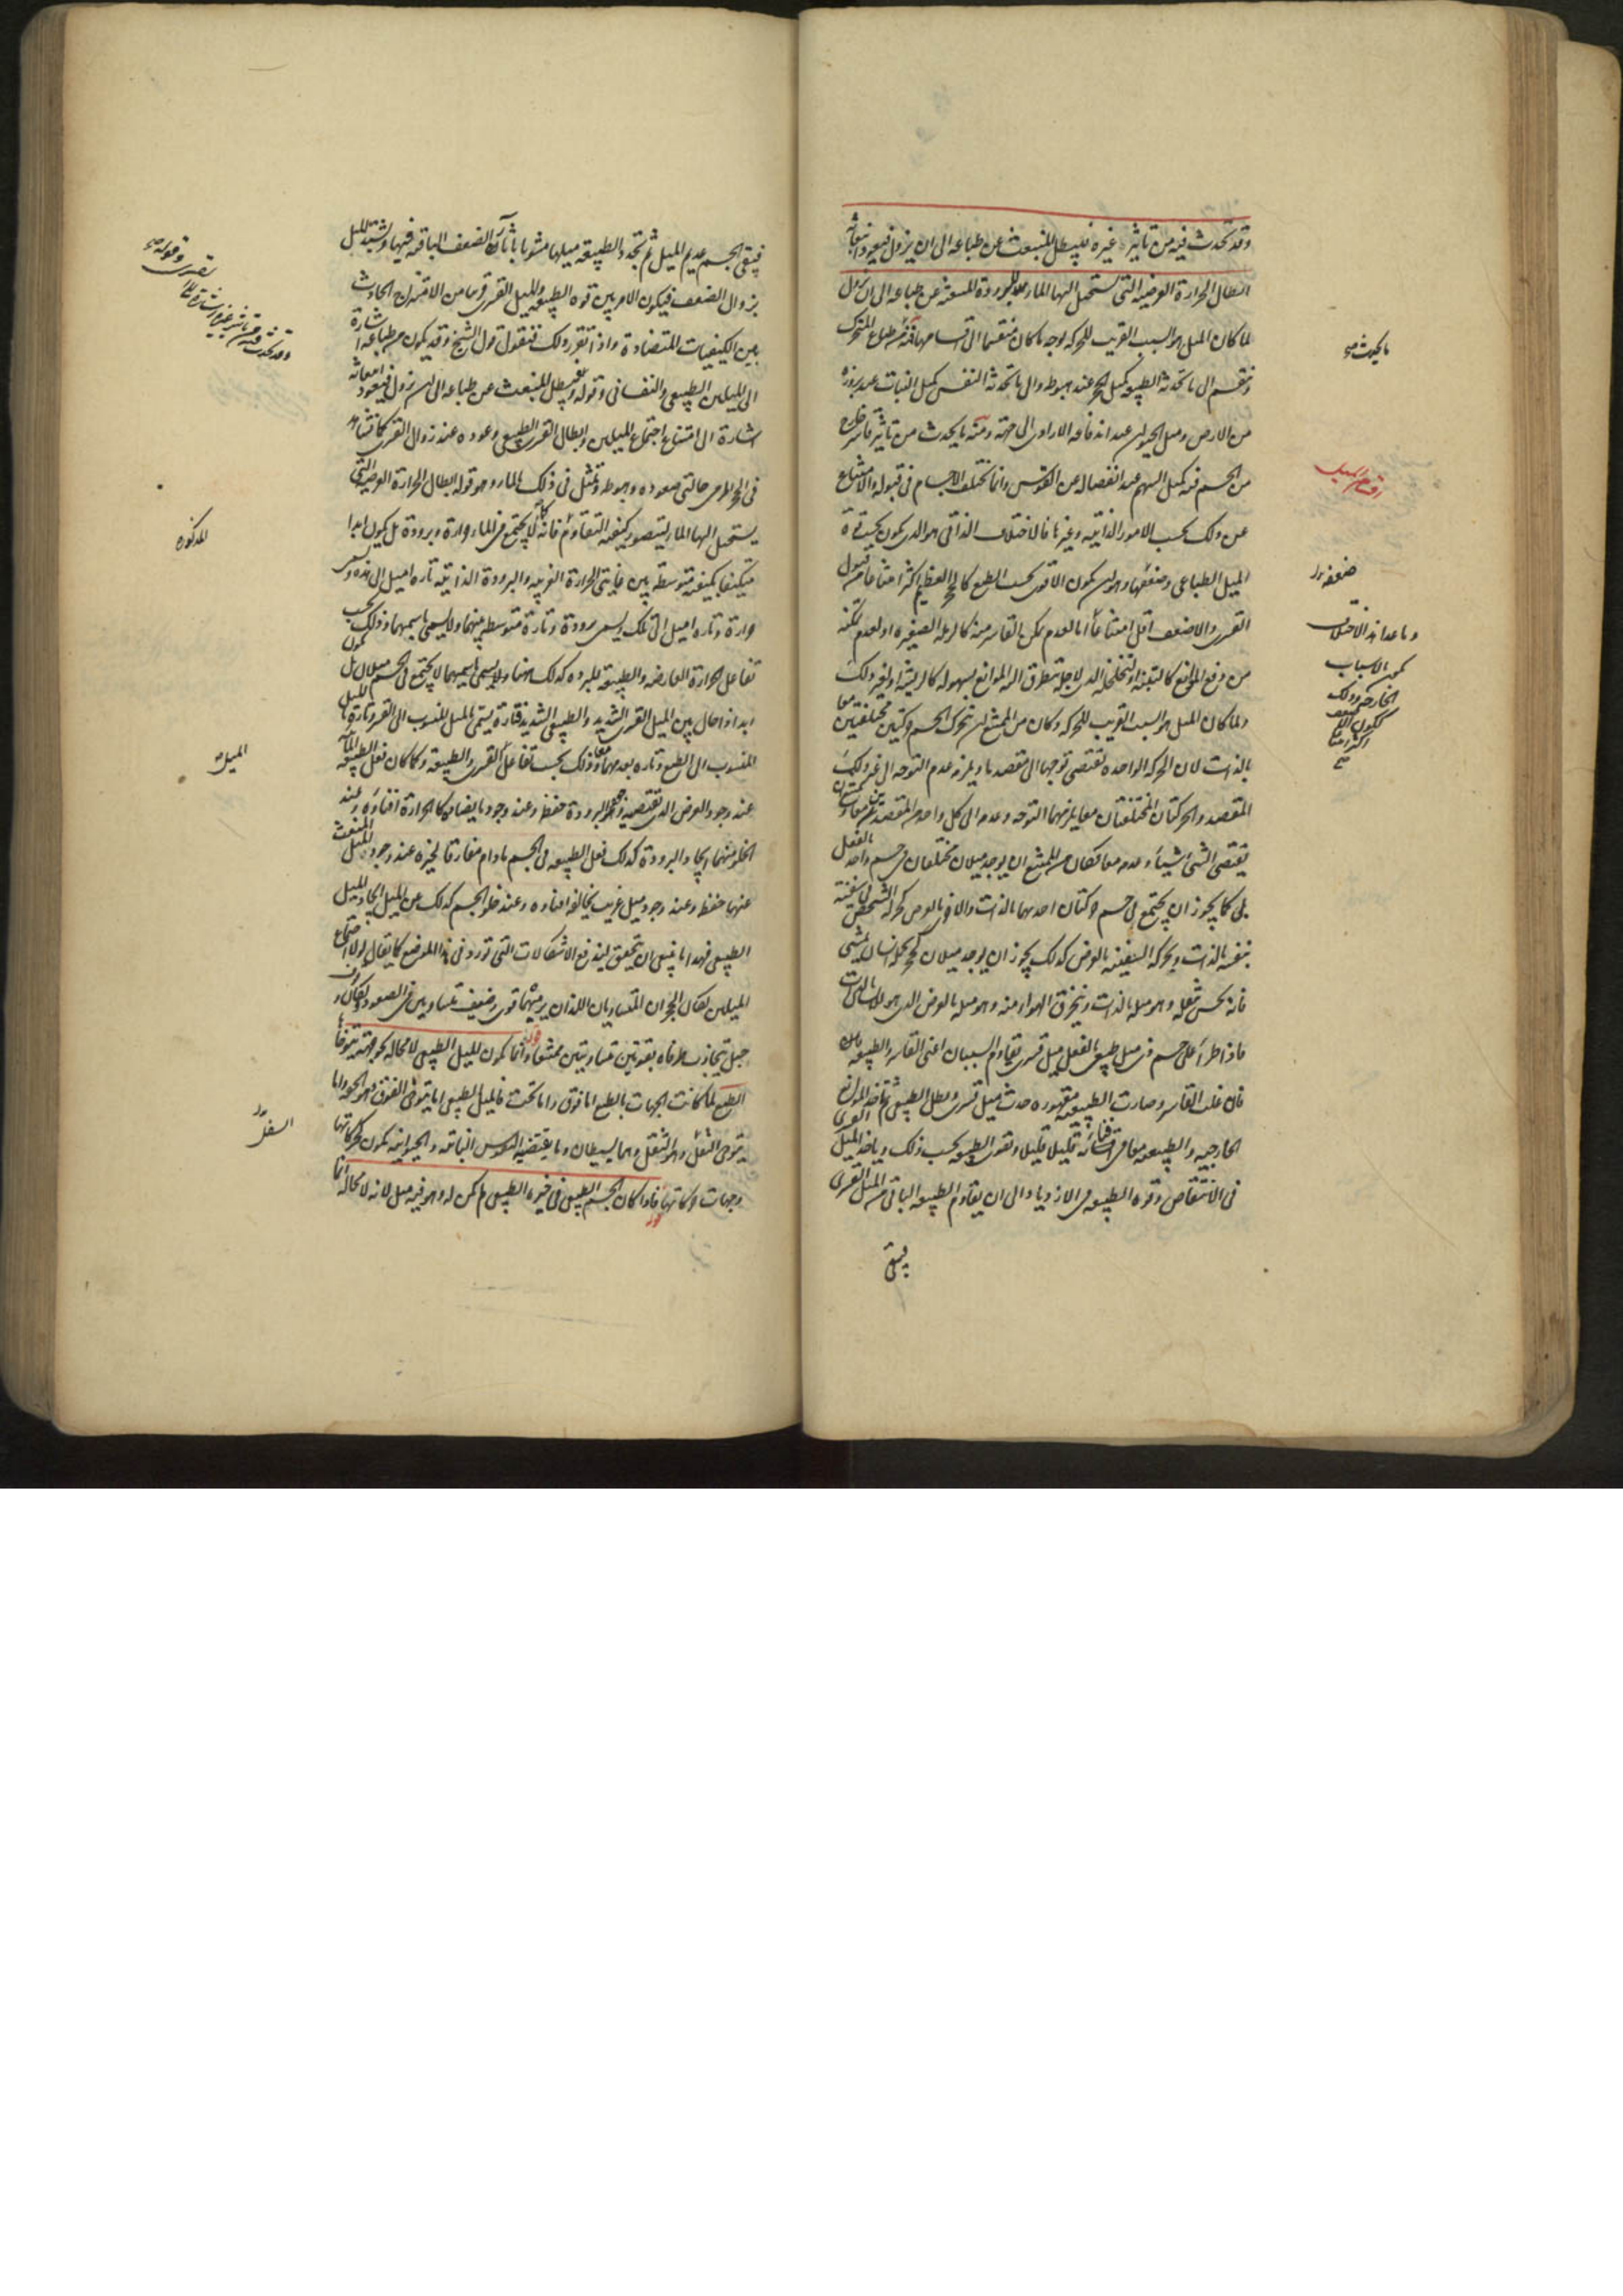 وقد تحدث فيه من تاثير غيره فيبطل المنبعث عن طباعه الى ان يزول فيعود انبعاثه
ابطال الحرارة العرضية التى يستحيل اليها الماء للبرودة المنبعثة عن طباعه الى ان تزول
لما كان الميل هو السبب القريب للحركة بوجه ما كان منقسما الى اقسامها فمنه من طباع المتحرك
وينقسم الى ما تحدثه الطبيعة كميل الحجر عند هبوطه والى ما تحدثه النفس كميل النبات عند بروزه
من الارض وميل الحيوان عند اندفاعه الارادى الى جهة ومنه ما يحدث من تاثير قاسر خارج
من الجسم فيه كميل السهم عند انفصاله عن القوس وانما تختلف الاجسام فى قبوله والامتناع
عن ذلك بحسب الامور الذاتية وغيرها فالاختلاف الذاتى هو الذى يكون بحسب قوة
الميل الطباعى وضعفها وهو ان يكون الاقوى بحسب الطبع كالحجر العظيم اكثر امتناعا من قبول
القسرى والاضعف اقل امتناعا اما لعدم تمكن القاسر منه كالرملة الصغيرة او لعدم تمكنه
من دفع الموانع كالتبنة او لتخلخله الذى لاجله تتطرق اليه الموانع بسهولة كالريشة او لغير ذلك
ولما كان الميل هو السبب القريب للحركة وكان من الممتنع ان يتحرك الجسم حركتين مختلفتين معا
بالذات لان الحركة الواحدة تقتضى توجها الى مقصد ما ويلزمه عدم التوجه الى غير ذلك
المقصد والحركتان المختلفتان معا يلزمهما التوجه وعدمه الى كل واحد من المقصدين
يقتضى الشى شيئا وعدمه معا فكان من الممتنع ان يوجد ميلان مختلفان فى جسم واحد بالفعل
بلى كما يجوز ان يجتمع فى جسم حركتان احديهما بالذات والاخرى بالعرض كحركة الشخص فى سفينة
بنفسه بالذات وبحركة السفينة بالعرض كذلك يجوز ان يوجد ميلان كحجر يحمله انسان يمشى
فانه يحس بثقله وهو ميله بالذات وينخرق الهواء منه وهو ميله بالعرض الذى هو للانسان بالذات
فاذا طرأ على جسم ذى ميل طبيعى بالفعل ميل قسرى تقاوم السببان اعنى القاسر والطبيعة
فان غلب القاسر وصارت الطبيعة مقهورة حدث ميل قسرى وبطل الطبيعى ثم تاخذ الموانع
الخارجية والطبيعة معا فى افنائه قليلا قليلا وتقوى الطبيعة بحسب ذلك وياخذ الميل القسرى
فى الانتقاص وقوة الطبيعة فى الازدياد الى ان يقاوم الطبيعة الباقى من الميل القسرى
فيبقى
اقسام الميل
ضعفه
وما عدا هذا الاختلاف
الخارجة وذلك
فيبقى الجسم عديم الميل ثم تجدد الطبيعة ميلها مشوبا باثار الضعف الباقية فيها ويشتد الميل
بزوال الضعف فيكون الامر بين قوة الطبيعة والميل القسرى قريبا من الامتزاج الحادث
بين الكيفيات المتضادة واذا تقرر ذلك فنقول قول الشيخ وقد يكون من طباعه اشارة
الى الميلين الطبيعى والنفسانى وقوله فيبطل المنبعث عن طباعه الى ان يزول فيعود انبعاثه
اشارة الى امتناع اجتماع الميلين وابطال القسرى الطبيعى وعوده عند زوال القسرى كما نشاهد
فى الحجر المرمى حالتى صعوده وهبوطه وتمثل فى ذلك بالماء وهو قوله ابطال الحرارة العرضية التى
يستحيل اليها الماء ليتصور كيفية التقاوم فانه كما لا يجتمع فى الماء حرارة وبرودة بل يكون ابدا
متكيفا بكيفية متوسطة بين غايتى الحرارة الغريبة والبرودة الذاتية تارة اميل الى هذه وتسمى
حرارة وتارة اميل الى تلك وتسمى برودة وتارة متوسطة بينهما ولا يسمى باسميهما وذلك بحسب
تفاعل الحرارة العارضة والطبيعة المبردة كذلك هنا لا يجتمع فى الجسم ميلان بل يكون
ابدا ذا حال بين الميل القسرى الشديد والطبيعى الشديد فتارة يسمى الميل المنسوب الى القسر وتارة بالميل
المنسوب الى الطبع وتارة بعدمهما معا وذلك بحسب تفاعل القسرى والطبيعة وكما كان فعل الطبيعة المائية
عند وجود العرض الذى تقتضيه وهو البرودة حفظه وعند وجود ما يضاده كالحرارة افناؤه وعند
الخلو منهما ايجاد البرودة كذلك فعل الطبيعة فى الجسم ما دام مفارقا لحيزه عند وجود الميل المنبعث
عنها حفظه وعند وجود ميل غريب يخالفه افناؤه وعند خلو الجسم كذلك من الميل ايجاد الميل
الطبيعى فهذا ما ينبغى ان يتحقق ليندفع الاشكالات التى تورد فى هذا الموضع كما يقال لولا اجتماع
الميلين لكان الحجران المتساويان اللذان يرميهما قوى وضعيف متساويين فى الصعود ولكان
حبل يتجاذب طرفاه بقوتين متساويتين ممتنعا وانما يكون الميل الطبيعى لا محالة نحو جهة يتوخاها
الطبع لما كانت الجهات بالطبع اما فوق واما تحت فالميل الطبيعى اما يتوخى الفوق وهو الخفة واما
يتوخى السفل وهو الثقل وهما بسيطان وما يقتضيه النفوس النباتية والحيوانية يكون كحركاتها
وجهات حركاتها فاذا كان الجسم الطبيعى فى حيزه الطبيعى لم يكن له وهو فيه ميل لانه لا محالة انما
المذكورة
الميل
السفل